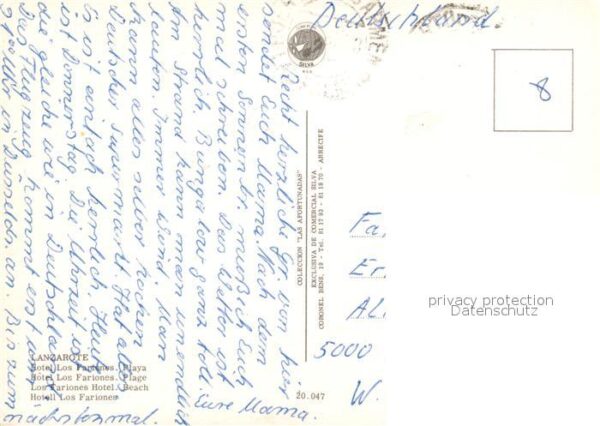 Deutschland
SILVA
8
Recht herzliche Gr. von hier
sendet Euch Mama. Nach dem
ersten Sonnenbr. muß ich Euch
mal schreiben. Das Wetter ist
herrlich. Bungalow ganz toll.
Am Strand kann man unendlich
laufen. Immer Wind. Man
kann alles selber kochen.
Deutscher Supermarkt. Hat alles
Es ist einfach herrlich. Heute
ist Donnerstag. Die Uhrzeit ist
die gleiche wie in Deutschland.
Das Flugzeug kommt erst um
9.00 Uhr in Düsseldorf an. Bis zum
nächstenmal. Eure Mama.
COLECCION "LAS AFORTUNADAS"
EXCLUSIVA DE COMERCIAL SILVA
CORONEL BENS, 19 - Tel. 81 17 92 - 81 19 70 - ARRECIFE
Fa.
Er.
Al.
5000
W.
privacy protection
Datenschutz
LANZAROTE
Hotel Los Fariones. Playa
Hôtel Los Fariones. Plage
Los Fariones Hotel. Beach
Hotell Los Fariones
20.047